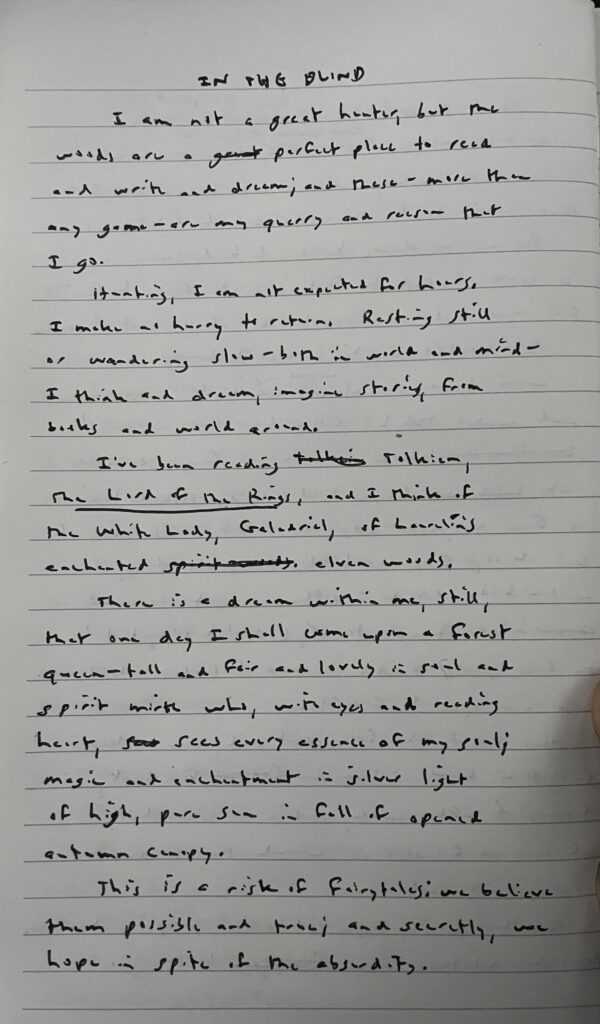 IN THE BLIND
I am not a great hunter, but the
woods are a great perfect place to read
and write and dream; and these - more than
any game - are my querry and reason that
I go.
Hunting, I am not expected for hours.
I make no hurry to return. Resting still
or wandering slow - both in world and mind -
I think and dream, imagine stories, from
books and world around.
I've been reading Tolkein Tolkien,
The Lord of the Rings, and I think of
the White Lady, Galadriel, of
enchanted spirit woods. elven woods.
There is a dream within me, still,
that one day I shall come upon a forest
queen - tall and fair and lovely in soul and
spirit mirth who, with eyes and reading
heart, sees every essence of my soul;
magic and enchantment in silver light
of high, pure sun in fall of opened
autumn canopy.
This is a risk of fairytales: we believe
them possible and true; and secretly, we
hope in spite of the absurdity.